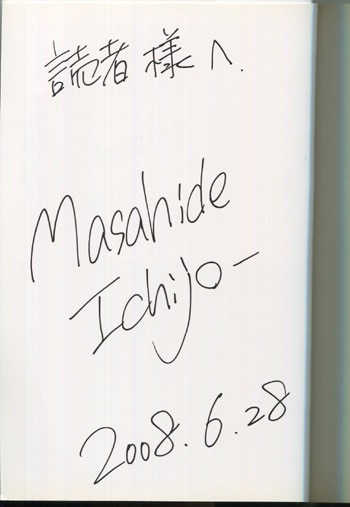 読者様へ.
Masahide
Ichijo-
2008.6.28